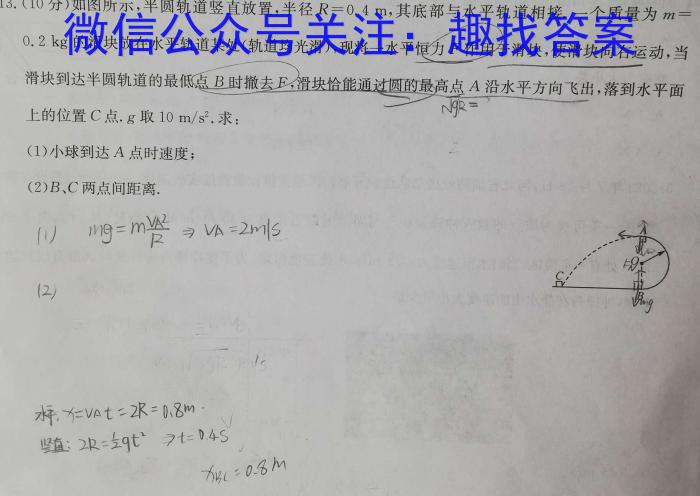 13.(10分)如图所示,半圆轨道竖直放置,半径R=0.4 m,其底部与水平轨道相接,一个质量为m=
微信公众号关注:趣找答案
0.2 kg的滑块放在水平轨道某处(轨道均光滑),现将一水平恒力F作用于滑块,使滑块向右运动,当
滑块到达半圆轨道的最低点B时撤去F,滑块恰能通过圆的最高点A沿水平方向飞出,落到水平面
上的位置C点.g取10 m/s².求:
√gR=
(1)小球到达A点时速度;
(2)B、C两点间距离.
(1) mg=m VA²/R ⇒ VA=2m/s
A
O
C
B
mg
(2)
m/s
水平: x=VAt=2R=0.8m.
竖直: 2R=½gt² ⇒t=0.4S
xBC=0.8m